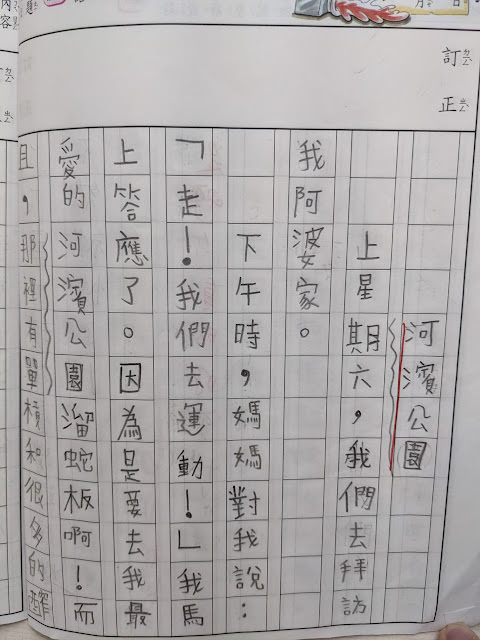 月
訂正
河濱公園
上星期六，我們去拜訪
我阿婆家。
下午時，媽媽對我說：
「走！我們去運動！」我馬
上答應了。因為是要去我最
愛的河濱公園溜蛇板啊！而
且，那裡有單槓和很多的